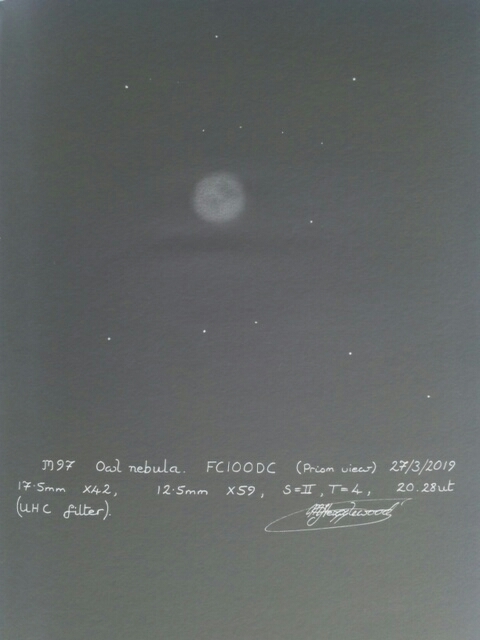 M97 Owl nebula. FC100DC (Prism view) 27/3/2019
17.5mm X42, 12.5mm X59, S=II, T=4, 20.28ut
(UHC filter).